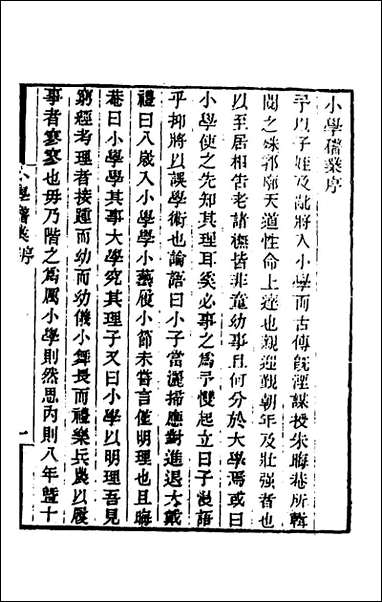 小學稽業序
予以子姪及齓將入小學而古傳既湮謀授朱晦菴所輯
閱之殊郛廓天道性命上達也親迎覲朝年及壯强者也
以至居相告老諸橅皆非童幼事且何分於大學焉或曰
小學使之先知其理耳奚必事之爲予矍起立曰子謾語
乎抑將以誤學術也論語曰小子當灑掃應對進退大戴
禮曰八歲入小學學小藝履小節未嘗言僅明理也且晦
菴曰小學學其事大學究其理子又曰小學以明理吾見
窮經考理者接踵而幼而幼儀小舞長而禮樂兵農以履
事者寥寥也毋乃階之爲厲小學則然思内則八年暨十
小學稽業序
一